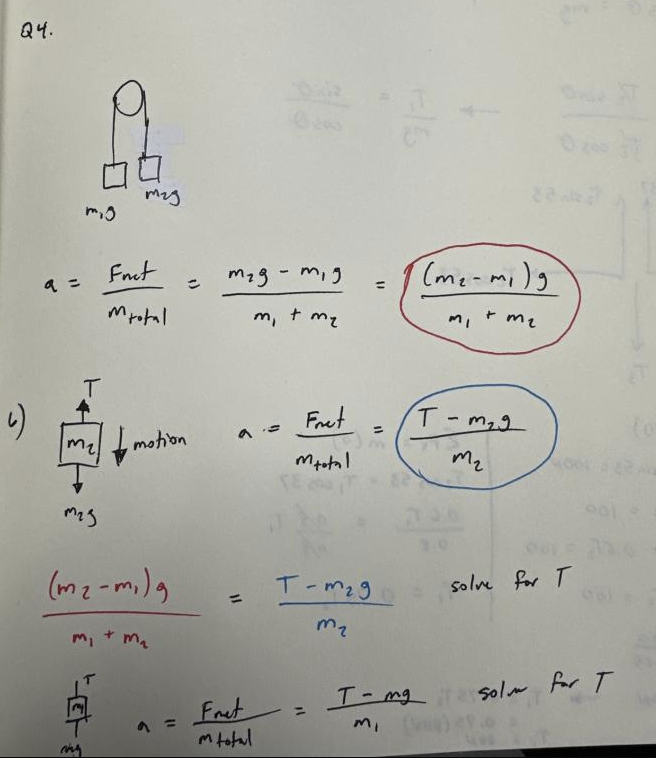 Q4.
m₁g m₂g
a = Fnet / mtotal = m₂g - m₁g / m₁ + m₂ = (m₂ - m₁)g / m₁ + m₂
b) T m₂ m₂g motion a = Fnet / mtotal = T - m₂g / m₂
(m₂ - m₁)g / m₁ + m₂ = T - m₂g / m₂ solve for T
T mg a = Fnet / mtotal = T - mg / m₁ solve for T